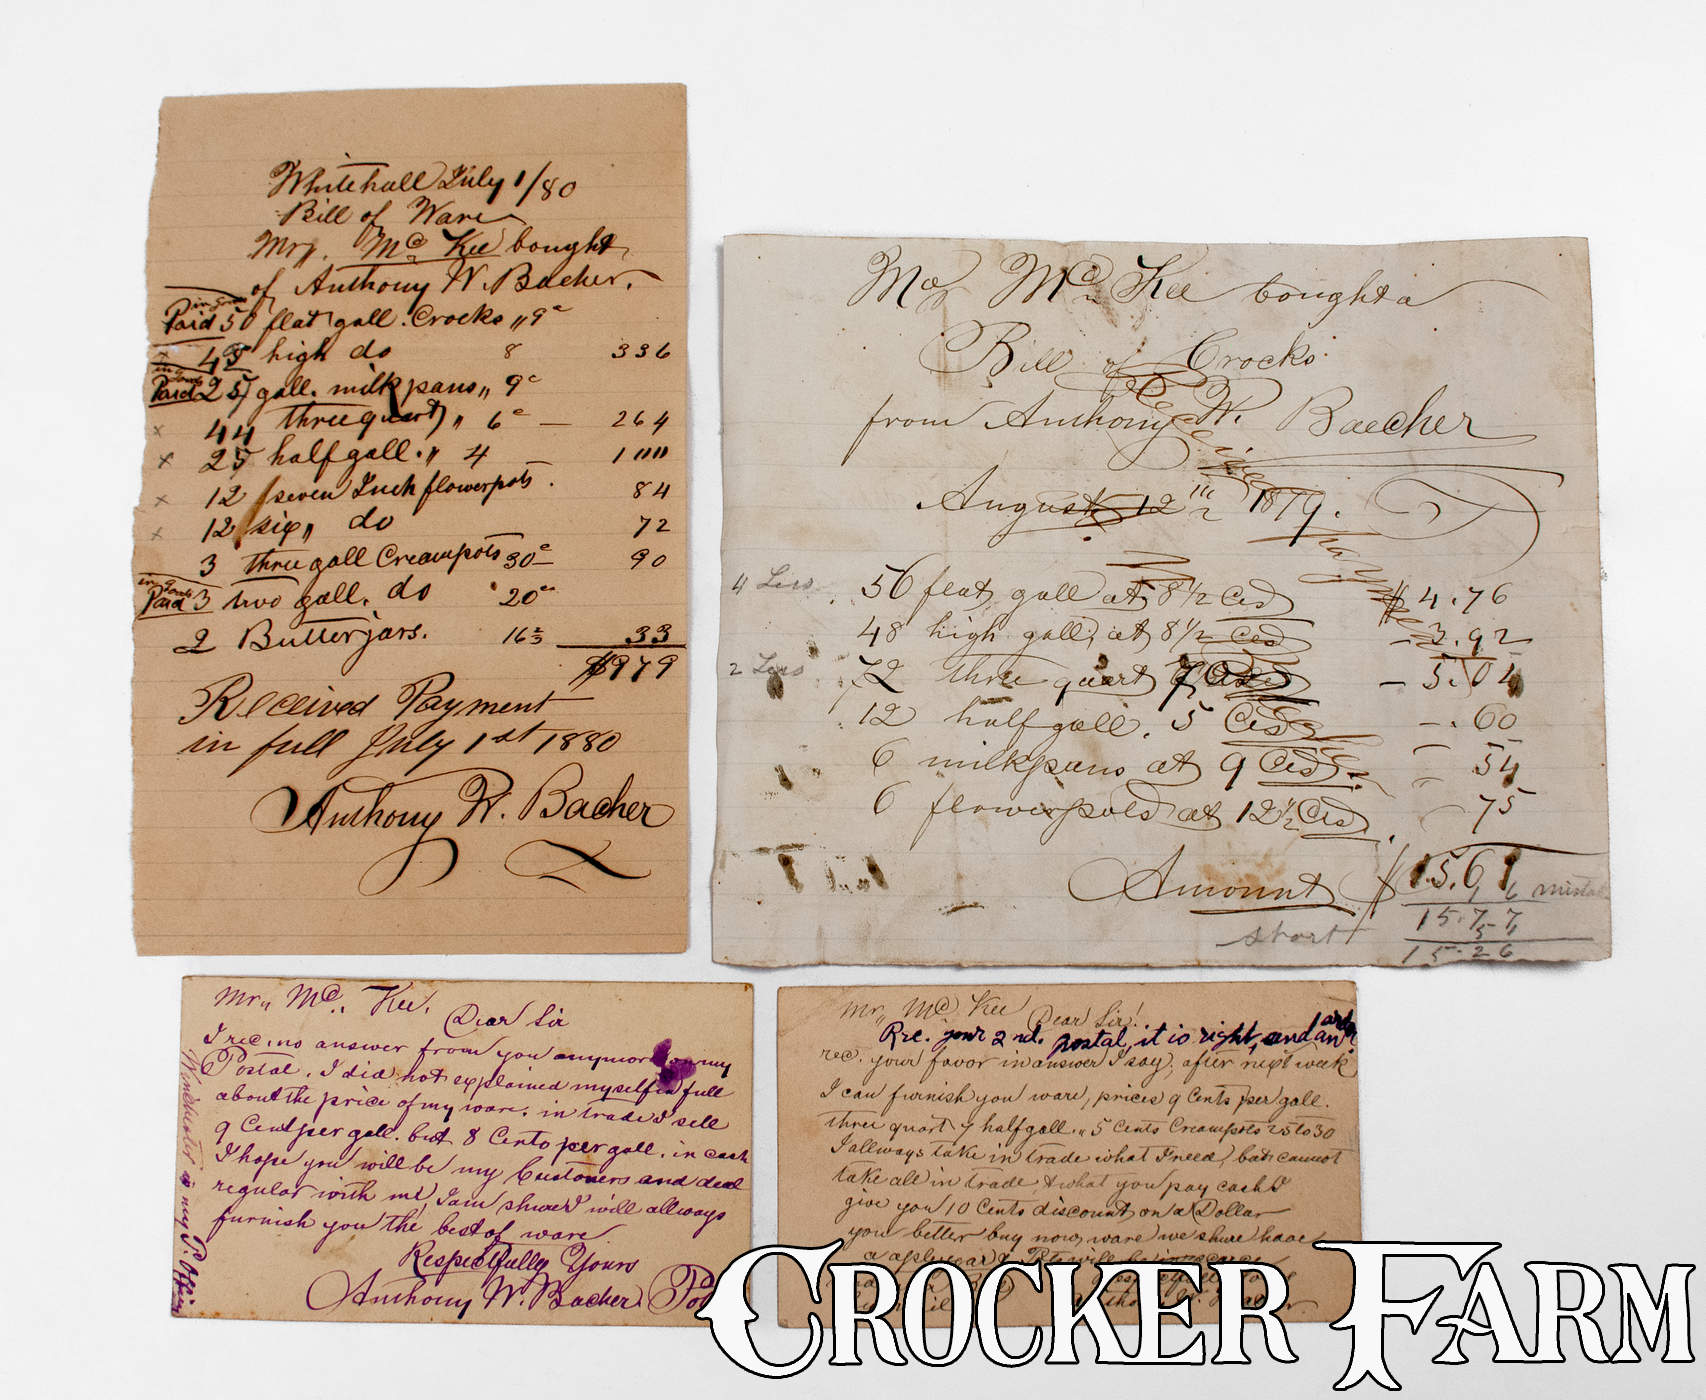 Whitehall July 1/80
Bill of Ware
Mr,, Mc Kee bought
of Anthony W. Baecher.
in goods
Paid 50 flat gall. Crocks ,, 9c
x 42 high do 8 336
in goods
Paid 25 gall. milkpans ,, 9c
x 44 three quart ,, 6c — 264
x 25 half gall. ,, 4 100
x 12 seven Inch flowerpots. 84
x 12 six ,, do 72
3 three gall Creampots 30c 90
in goods
Paid 3 two gall. do 20c
2 Butterjars. 16 2/3 33
$979
Received Payment
in full July 1st 1880
Anthony W. Bacher
Mr Mc Kee bought a
Bill of Crocks
from Anthony W. Baecher
August 12th 1879.
Received Payment
4 Less 56 flat gall at 8 1/2 Cts $4.76
48 high gall, at 8 1/2 Cts - 3.92
2 Less 72 three quart 7 Cts - 5.04
12 half gall. 5 Cts -. 60
6 milkpans at 9 Cts. 54
6 flowerpots at 12 1/2 Cts. 75
Amount $15.61
16 mistake
15.77
short 51
15.26
Mr,, Mc,, Kee.
Dear Sir
I rec. no answer from you anymore on my
Postal. I did not explained myself in full
about the price of my ware. in trade I sell
9 Cent per gall. but 8 Cents per gall. in cash
I hope you will be my Customers and deal
regular with me, I am shure I will allways
furnish you the best of ware.
Respectfully Yours
Anthony W. Bacher
Winchester is my P. Office
Mr,, Mc Kee
Dear Sir!
Rec. your 2nd. postal, it is right, and an
rec. your favor in answer I say, after next week
I can furnish you ware, prices 9 Cents per gall.
three quart 7 half gall. ,, 5 Cents Creampots 25 to 30
I allways take in trade what I need, but cannot
take all in trade, & what you pay cash I
give you 10 Cents discount on a Dollar
you better buy now, ware we shure have
CROCKER FARM